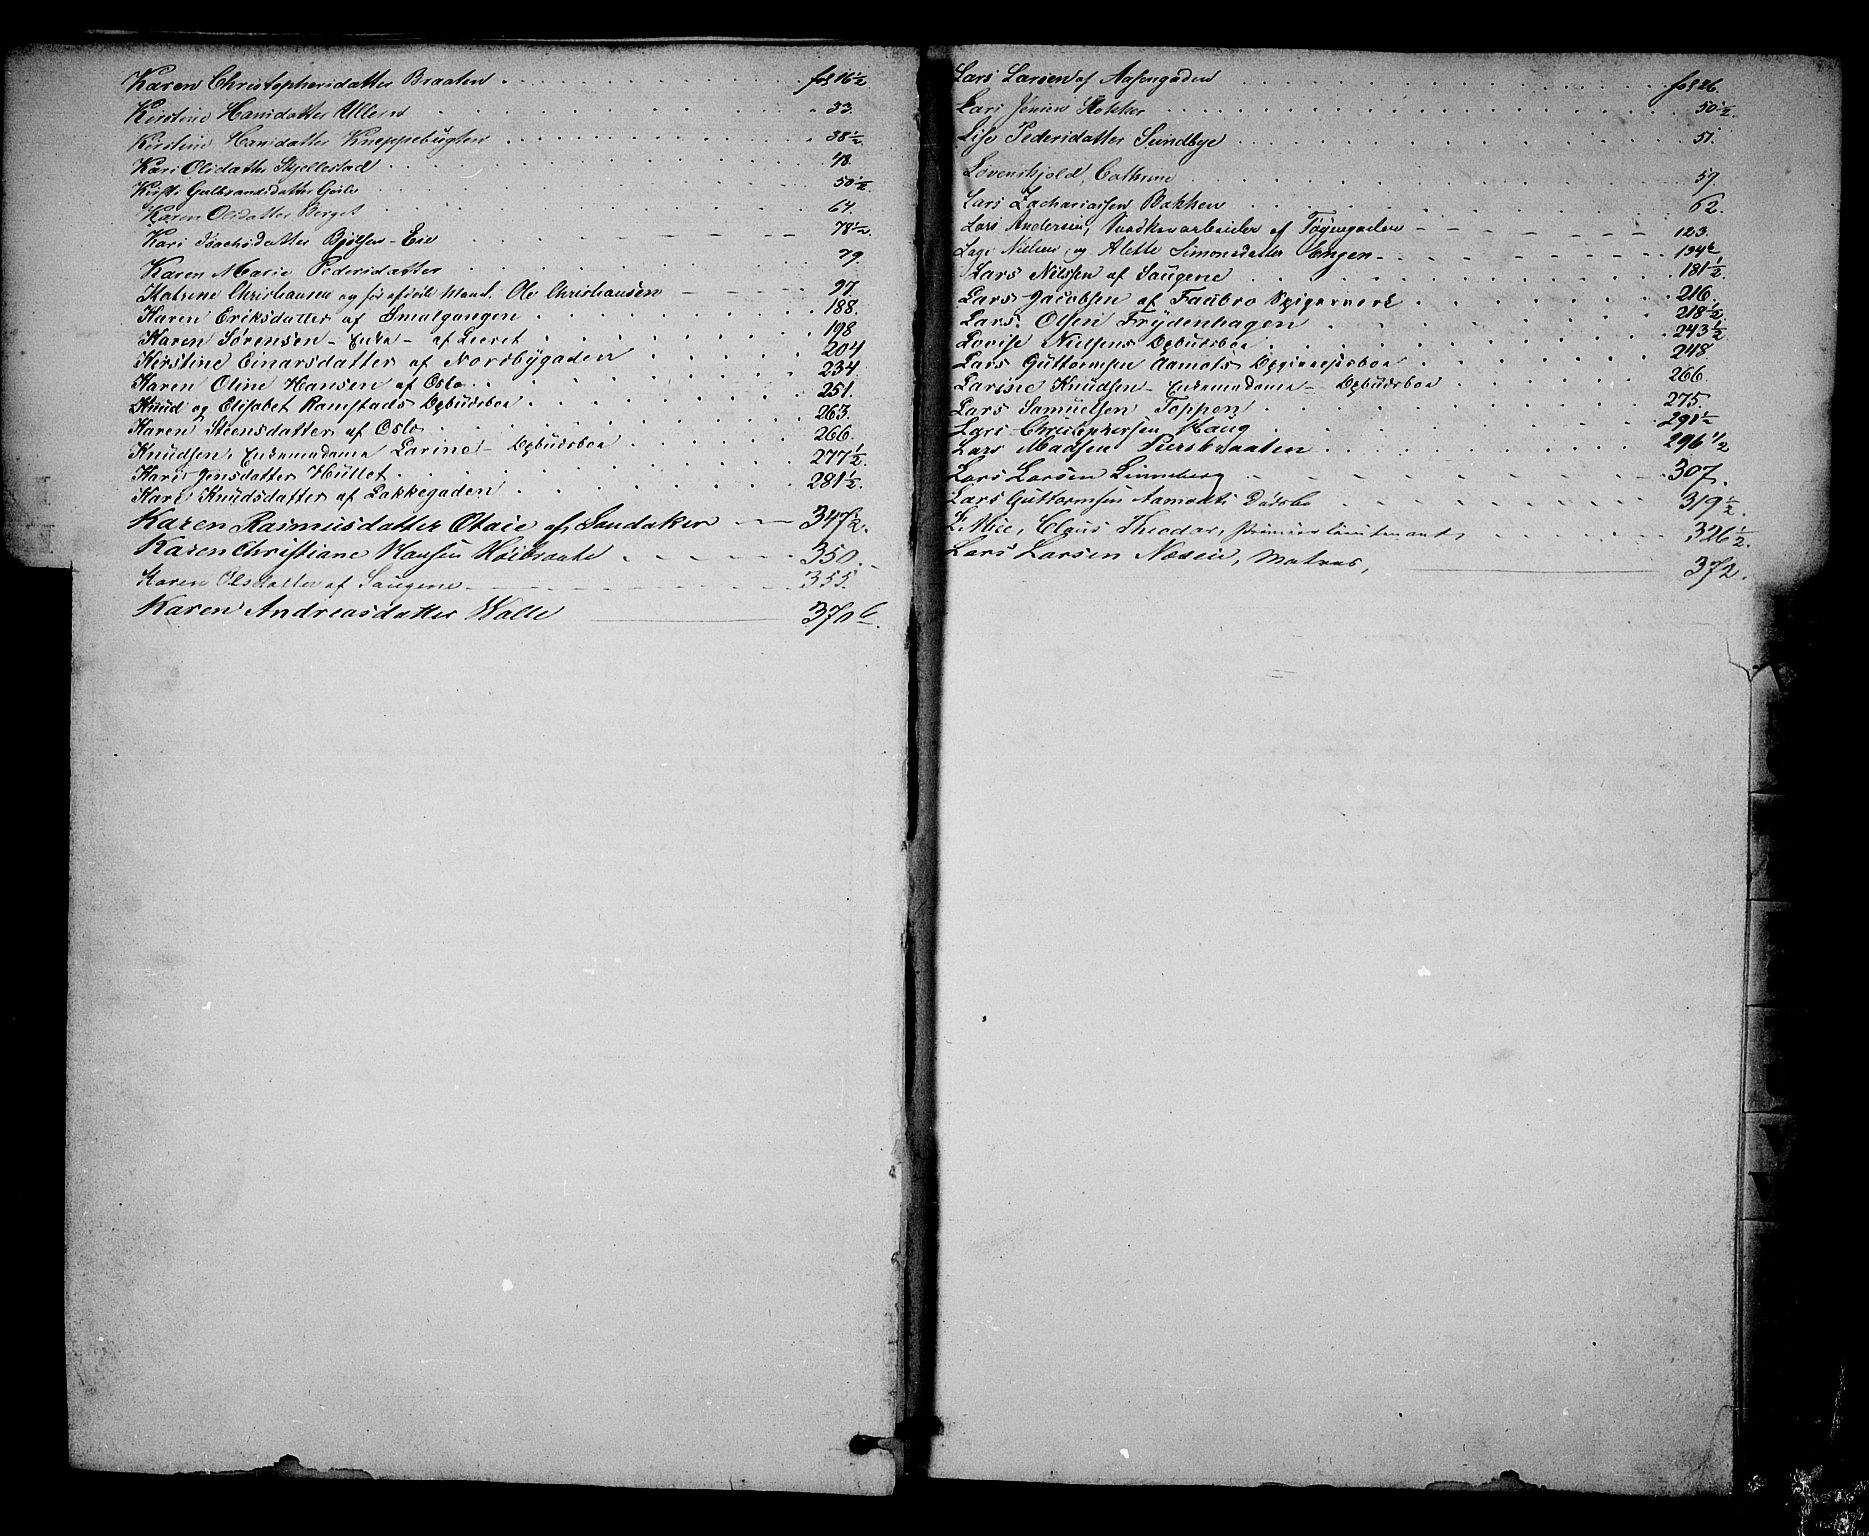 Karen Christophersdatter Braaten fol 16 1/2
Kirstine Hansdatter Ullern 33.
Kirstine Hansdatter Kneppebugten 38 1/2
Kari Olsdatter Skjellestad 48.
Kisti Gulbrandsdatter 50 1/2.
Karen Olsdatter Berget 64.
Kari Joachsdatter Bjølsen-Eie 78 1/2.
Karen Marie Pedersdatter 79.
Katrine Christiansen og før afdøde Mand. Ole Christiansen 97.
Karen Eriksdatter af Smalgangen 188.
Karen Sørensen - Enke - af Leeret 198
Kirstine Einarsdatter af Nordbygaden 204
Karen Oline Hansen af Oslo 234.
Knud og Elisabet Ramstads Opbudsboe 251.
Karen Steensdatter af Oslo 263.
Knudsen, Enkemadame Larine - Opbudsboe 266.
Kari Jensdatter Hullet 277 1/2.
Kari Knudsdatter af Lakkegaden 281 1/2.
Karen Rasmusdatter Otaie af Sandaker 347 1/2.
Karen Christiane Hansen Høibraate 350.
Karen Olsdatter af Saugene 355.
Karen Andreasdatter Wolle 370 b.
Lars Larsen af Aasengaden fol 26.
Lars Jensen Stokker 50 1/2.
Lise Pedersdatter Sundbye 51.
Løvenskjold, Cathrine 59.
Lars Zachariassen Bakken 62.
Lars Andersen, Vaadkerarbeider af Tøyengaden 123.
Lage Nielsen og Alette Simonsdatter Engen 134 1/2
Lars Nilssen af Saugene 181 1/2.
Lars Jacobsen af Faabro Spigerverk 216.
Lars Olsen Frydenhagen 218 1/2.
Lovise Nielsens Opbudsboe 243 1/2
Lars Guttormsen Aamots Opgivelsesboe 248
Larine Knudsen - Enkemadame - Opbudsboe 266.
Lars Samuelsen Toppen 275.
Lars Christophersen Haug 291 1/2
Lars Madsen Piersbraaten 296 1/2
Lars Larsen Linneberg 307.
Lars Guttormsen Aamodts Dødsbo 319 1/2.
Claus Theodor, Premierlieutenant 326 1/2.
Lars Larsen Næsen, Matros, 372.